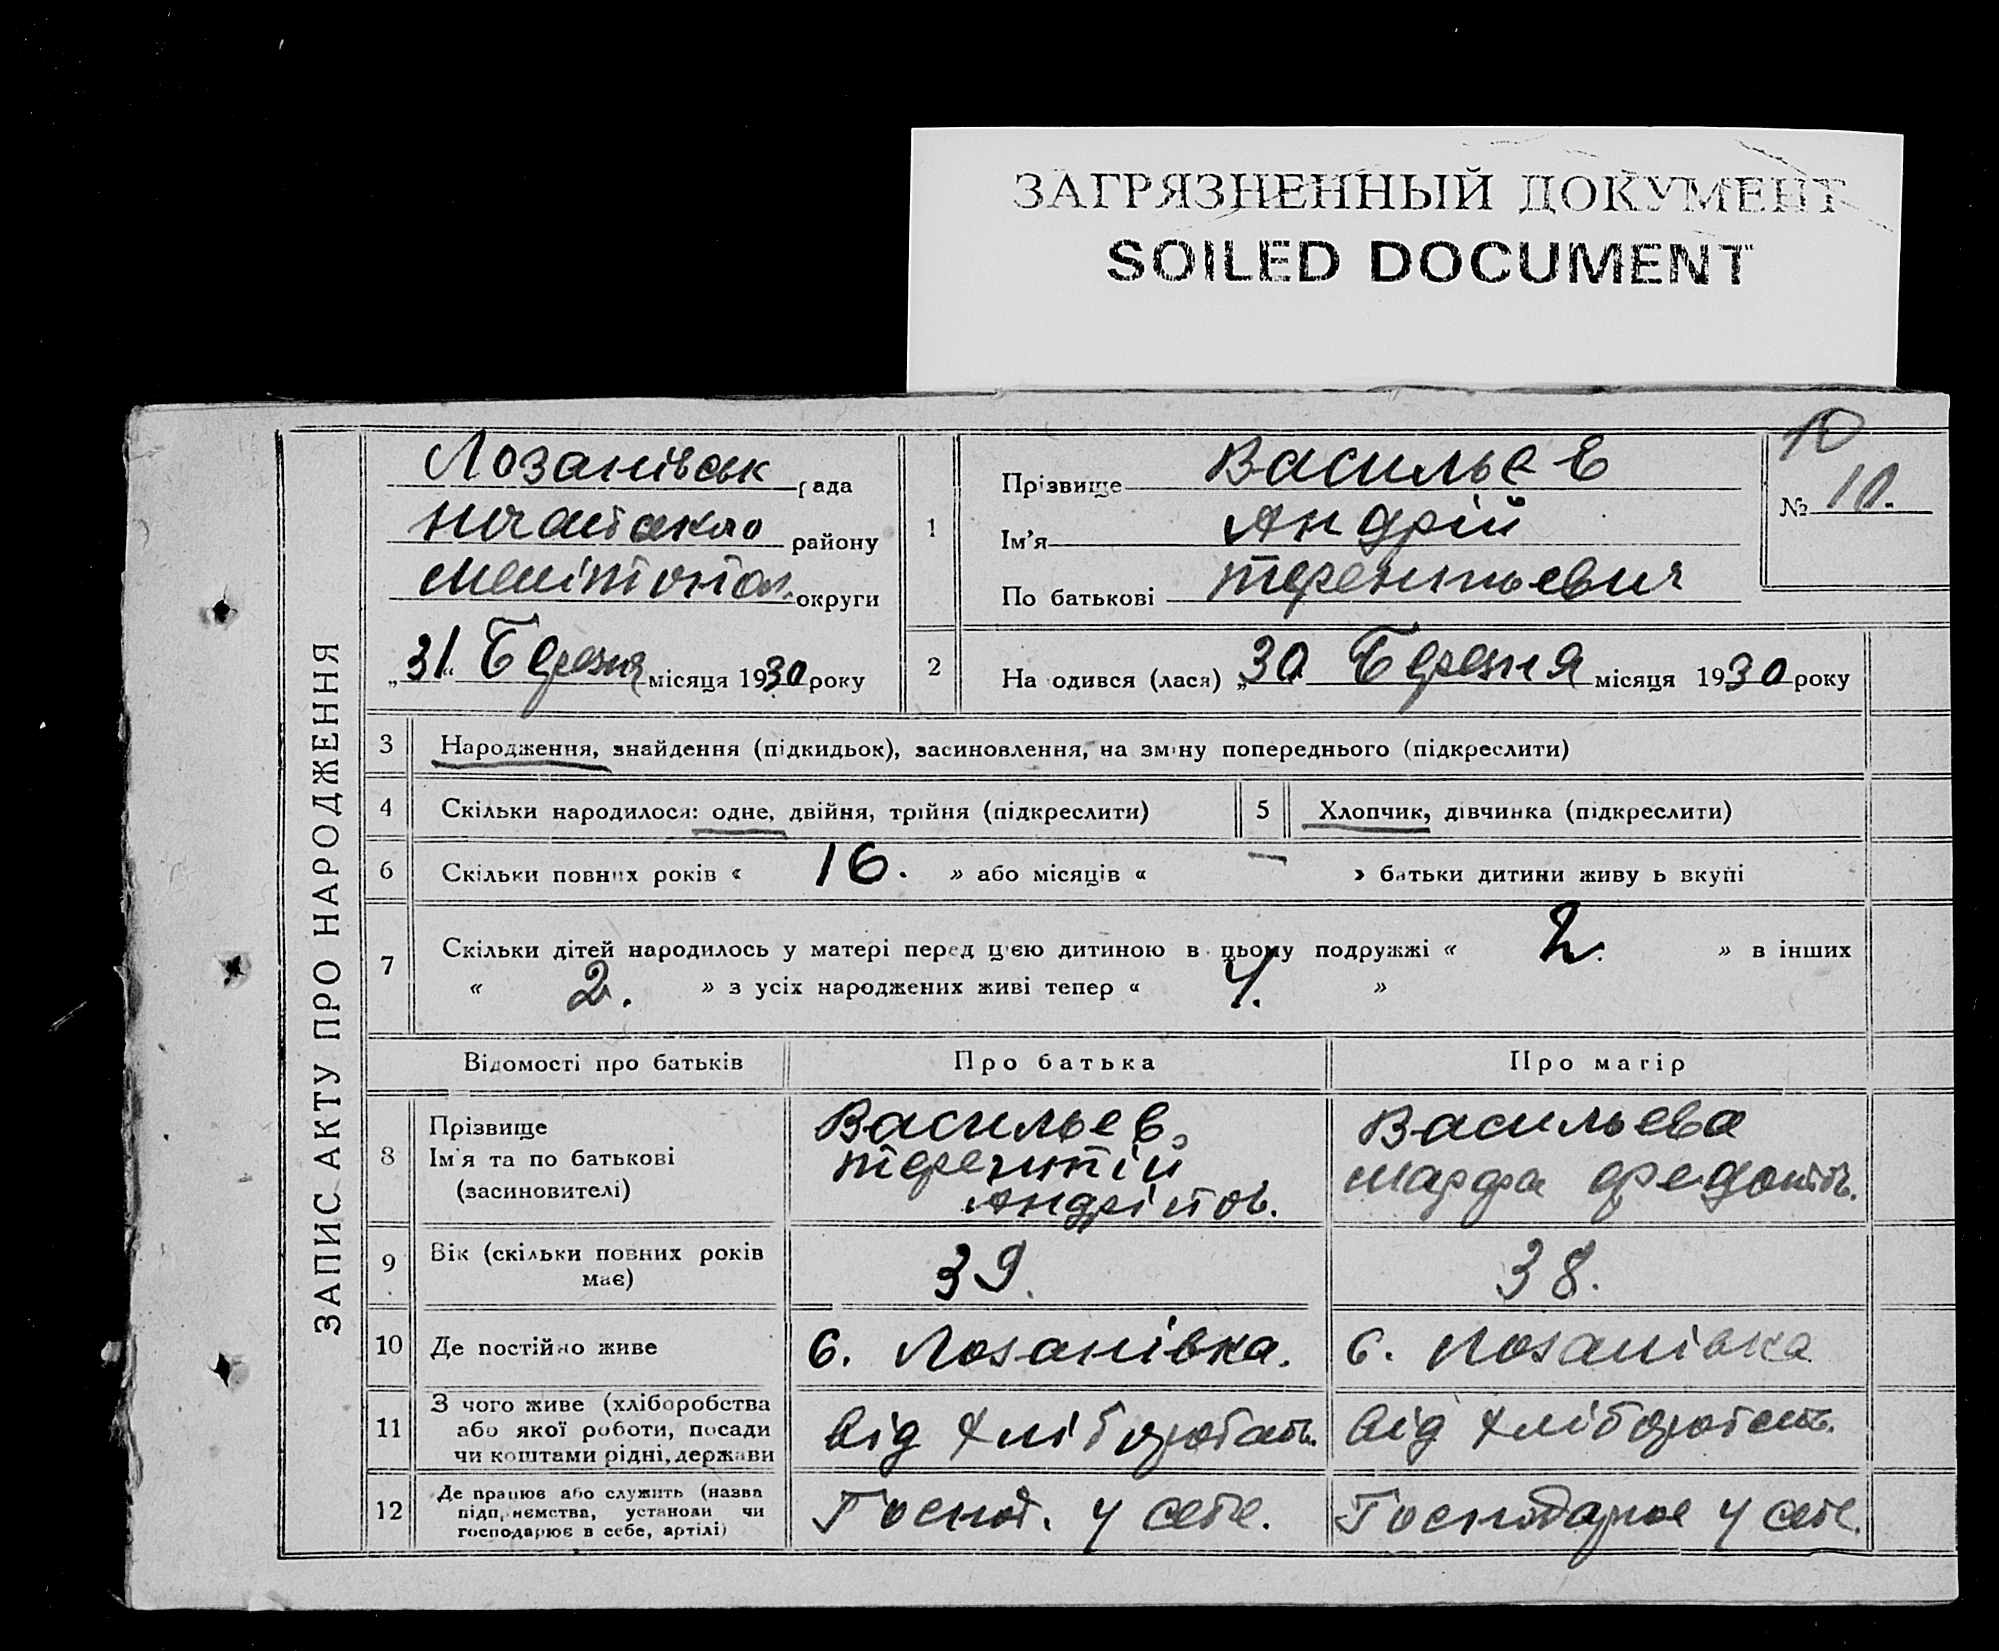 ЗАГРЯЗНЕННЫЙ ДОКУМЕНТ
SOILED DOCUMENT
ЗАПИС АКТУ ПРО НАРОДЖЕННЯ
Лозанівськ рада
району
округи
„31“ Березня місяця 1930 року
1
Прізвище Васильєв
Ім'я Андрій
По батькові Терентьевич
10
№ 10.
2
На одився (лася) „30 Березня місяця 1930 року
3 Народження, знайдення (підкидьок), засиновлення, на зміну попереднього (підкреслити)
4 Скільки народилося: одне, двійня, трійня (підкреслити) 5 Хлопчик, дівчинка (підкреслити)
6 Скільки повних років « 16. » або місяців « — » батьки дитини живу ь вкупі
7 Скільки дітей народилось у матері перед цією дитиною в цьому подружжі « 2. » в інших
« 2. » з усіх народжених живі тепер « 4. »
Відомості про батьків Про батька Про матір
8
Прізвище Васильев Васильева
Ім'я та по батькові Терентій Марфа Федотів.
(засиновителі) Андріїов.
9 Вік (скільки повних років має) 39. 38.
10 Де постійно живе с. Лозанівка. с. Лозанівка
11
З чого живе (хліборобства від хліборобств. від хліборобств.
або якої роботи, посади
чи коштами рідні, держави
12
Де працює або служить (назва Господ. у себе. Господарює у себе.
підприємства, установи чи
господарює в себе, артілі)